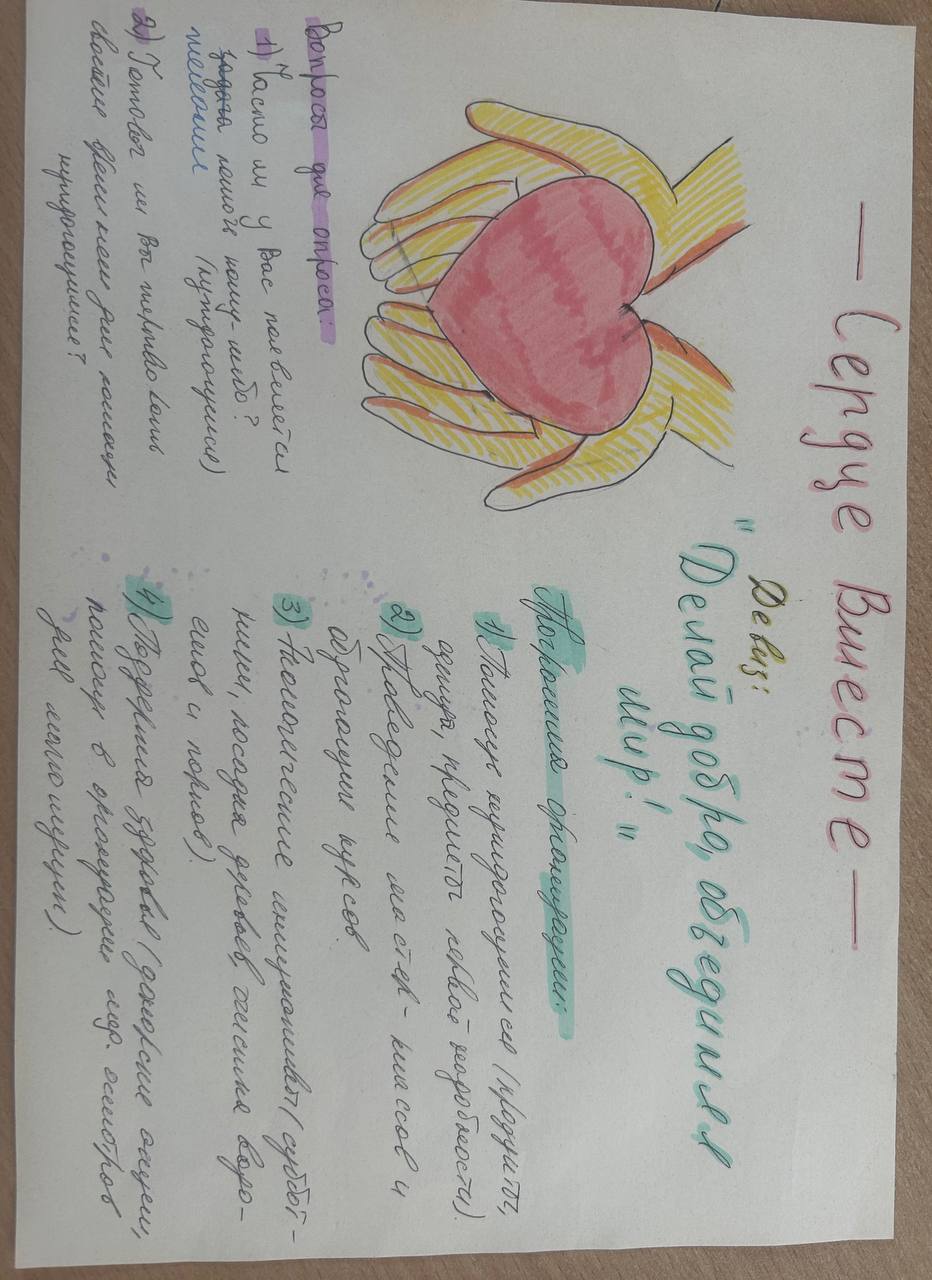 — Сердце Вместе —
Девиз:
"Делай добро, объединяя
мир!"
Программа организации:
1) Помощь нуждающимся (продукты,
одежда, предметы первой необходимости).
2) Проведение мастер-классов и
обучающих курсов.
3) Экологические инициативы (суббот-
ники, посадка деревьев, очистка водо-
ёмов и парков).
4) Поддержка здоровья (донорские акции,
помощь в организации мед. осмотров
для малоимущих).
Вопросы для опроса:
1) Часто ли у Вас появляется
задача помочь кому-либо?
желание (нуждающимся)
2) Готовы ли Вы жертвовать
своим временем для помощи
нуждающимся?